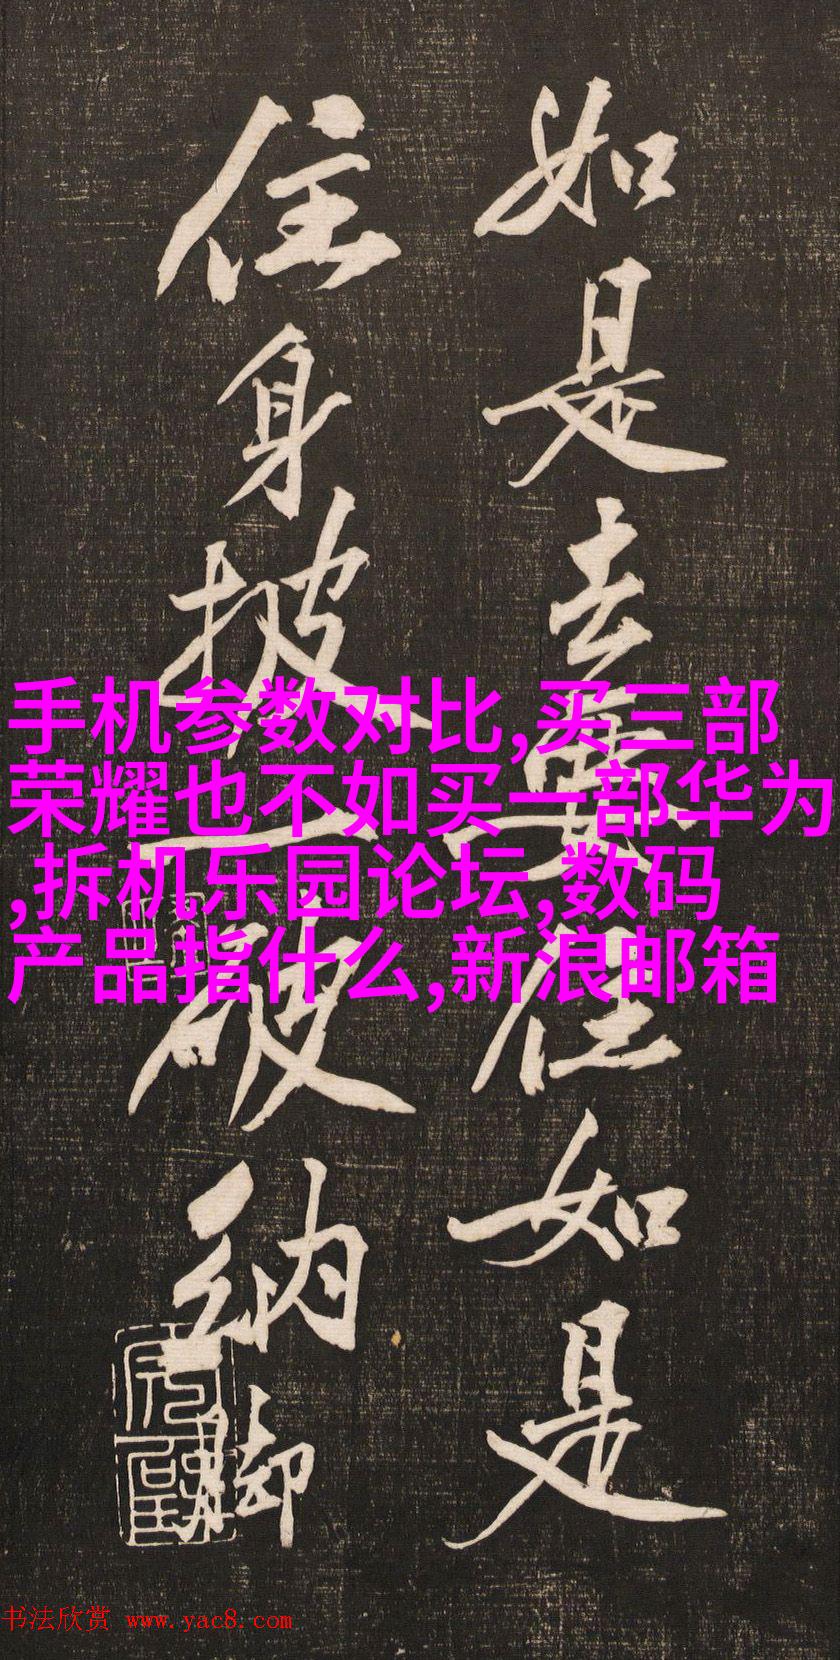 如是去要住如是
住身披一破衲脚
手机参数对比,买三部
荣耀也不如买一部华为
,拆机乐园论坛,数码
产品指什么,新浪邮箱
书法欣赏 www.yac8.com